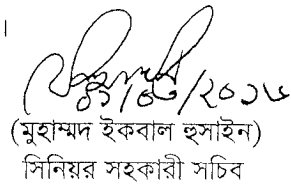 ।
০১/০৩/২০১৬
(মুহাম্মদ ইকবাল হুসাইন)
সিনিয়র সহকারী সচিব